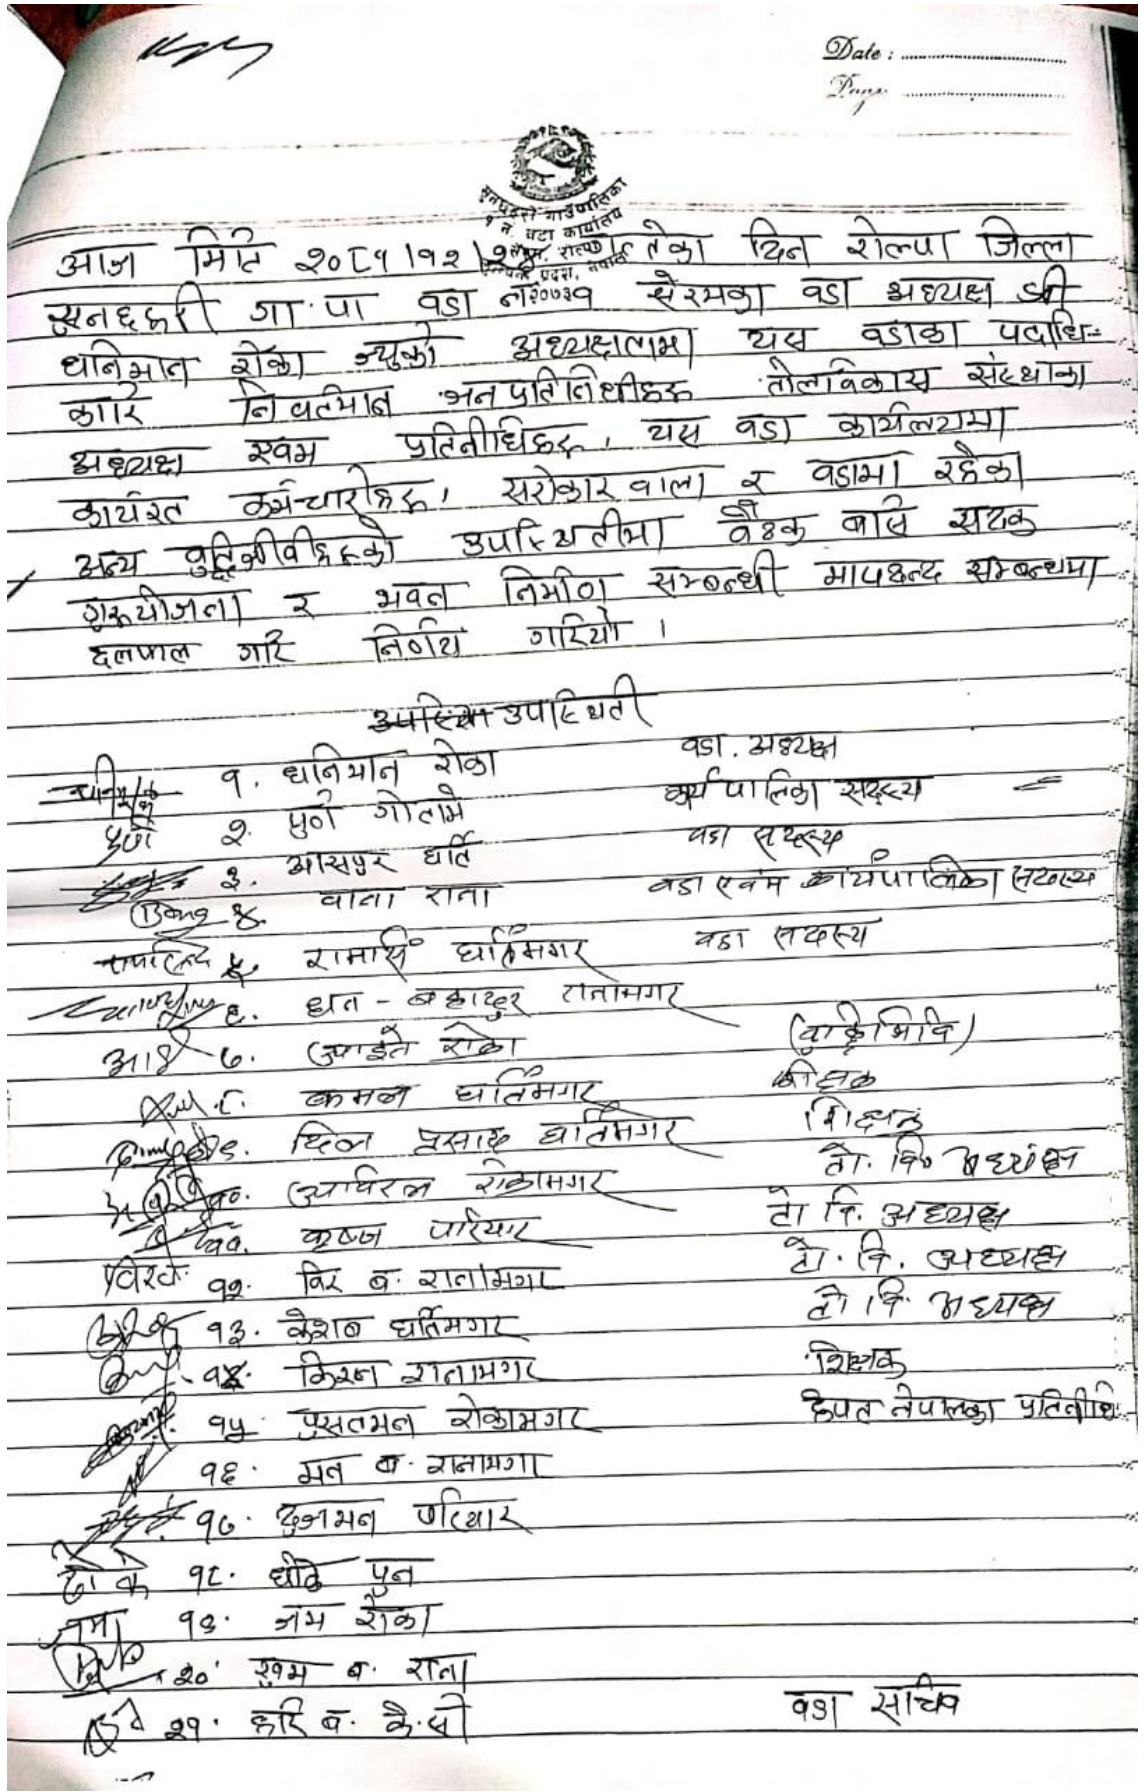 Date :
Page
सुनछहरी गाउँपालिका
१ नं. वडा कार्यालय
सेरम, रोल्पा
प्रदेश, नेपाल
२०७३
आज मिति २०८१।१२। गतेका दिन रोल्पा जिल्ला
सुनछहरी गा.पा वडा नं १ सेरमका वडा अध्यक्ष श्री
धनिमान रोका ज्युको अध्यक्षतामा यस वडाका पदाधि-
कारि निवर्तमान जनप्रतिनिधीहरू तोलविकास संस्थाका
अध्यक्ष एवम प्रतिनीधिहरू, यस वडा कार्यलयमा
कार्यरत कर्मचारीहरू, सरोकारवाला र वडामा रहेका
अन्य वुद्धिजीवीहरूको उपस्थितीमा वैठक वसि सडक
गुरूयोजना र भवन निर्माण सम्बन्धी मापदन्द सम्बन्धमा
छलफल गरि निर्णय गरियो ।
उपस्थिती
१. धनिमान रोका वडा. अध्यक्ष
२. पुर्ण गोतामे कार्यपालिका सदस्य
३. आसपुर घर्ति वडा सदस्य
४. वाना राना वडा एवंम कार्यपालिका सदस्य
५. रामसिं घर्तिमगर वडा सदस्य
६. धन-बहादुर रानामगर
७. रोका
८. कमल घर्तिमगर
९. दिल प्रसाद घर्तिमगर शिक्षक
१०. रोकामगर तो. वि. अध्यक्ष
११. कृष्ण परियार टो वि. अध्यक्ष
१२. विर ब. रानामगर टो. वि. अध्यक्ष
१३. केशब घर्तिमगर तो. वि. अध्यक्ष
१४. किरन रानामगर शिक्षक
१५. पुस्तमन रोकामगर नेपालका प्रतिनीधि
१६. मन ब. रानामगर
१७. दुजमन परियार
१८. पुन
१९. जम रोका
२०. खुम ब. राना
२१. हरि ब. के.सी वडा सचिव